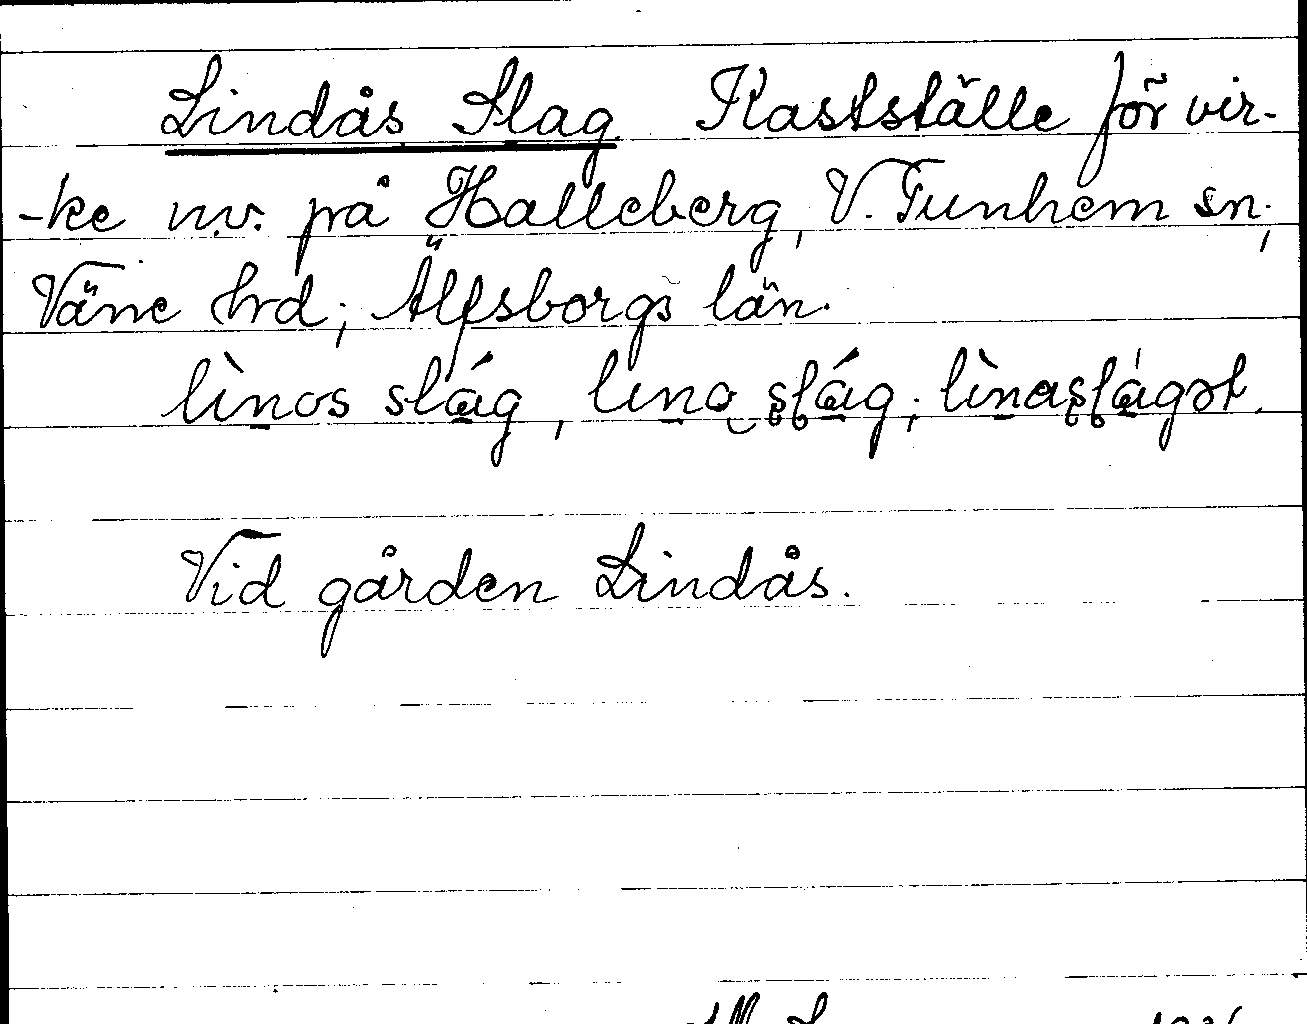 Lindås Slag Kastställe för vir-
-ke n.v. på Halleberg, V. Tunhem sn;
Väne hrd; Älfsborgs län.
lìnos slág, lìno slág; lìnaslágət.
Vid gården Lindås.